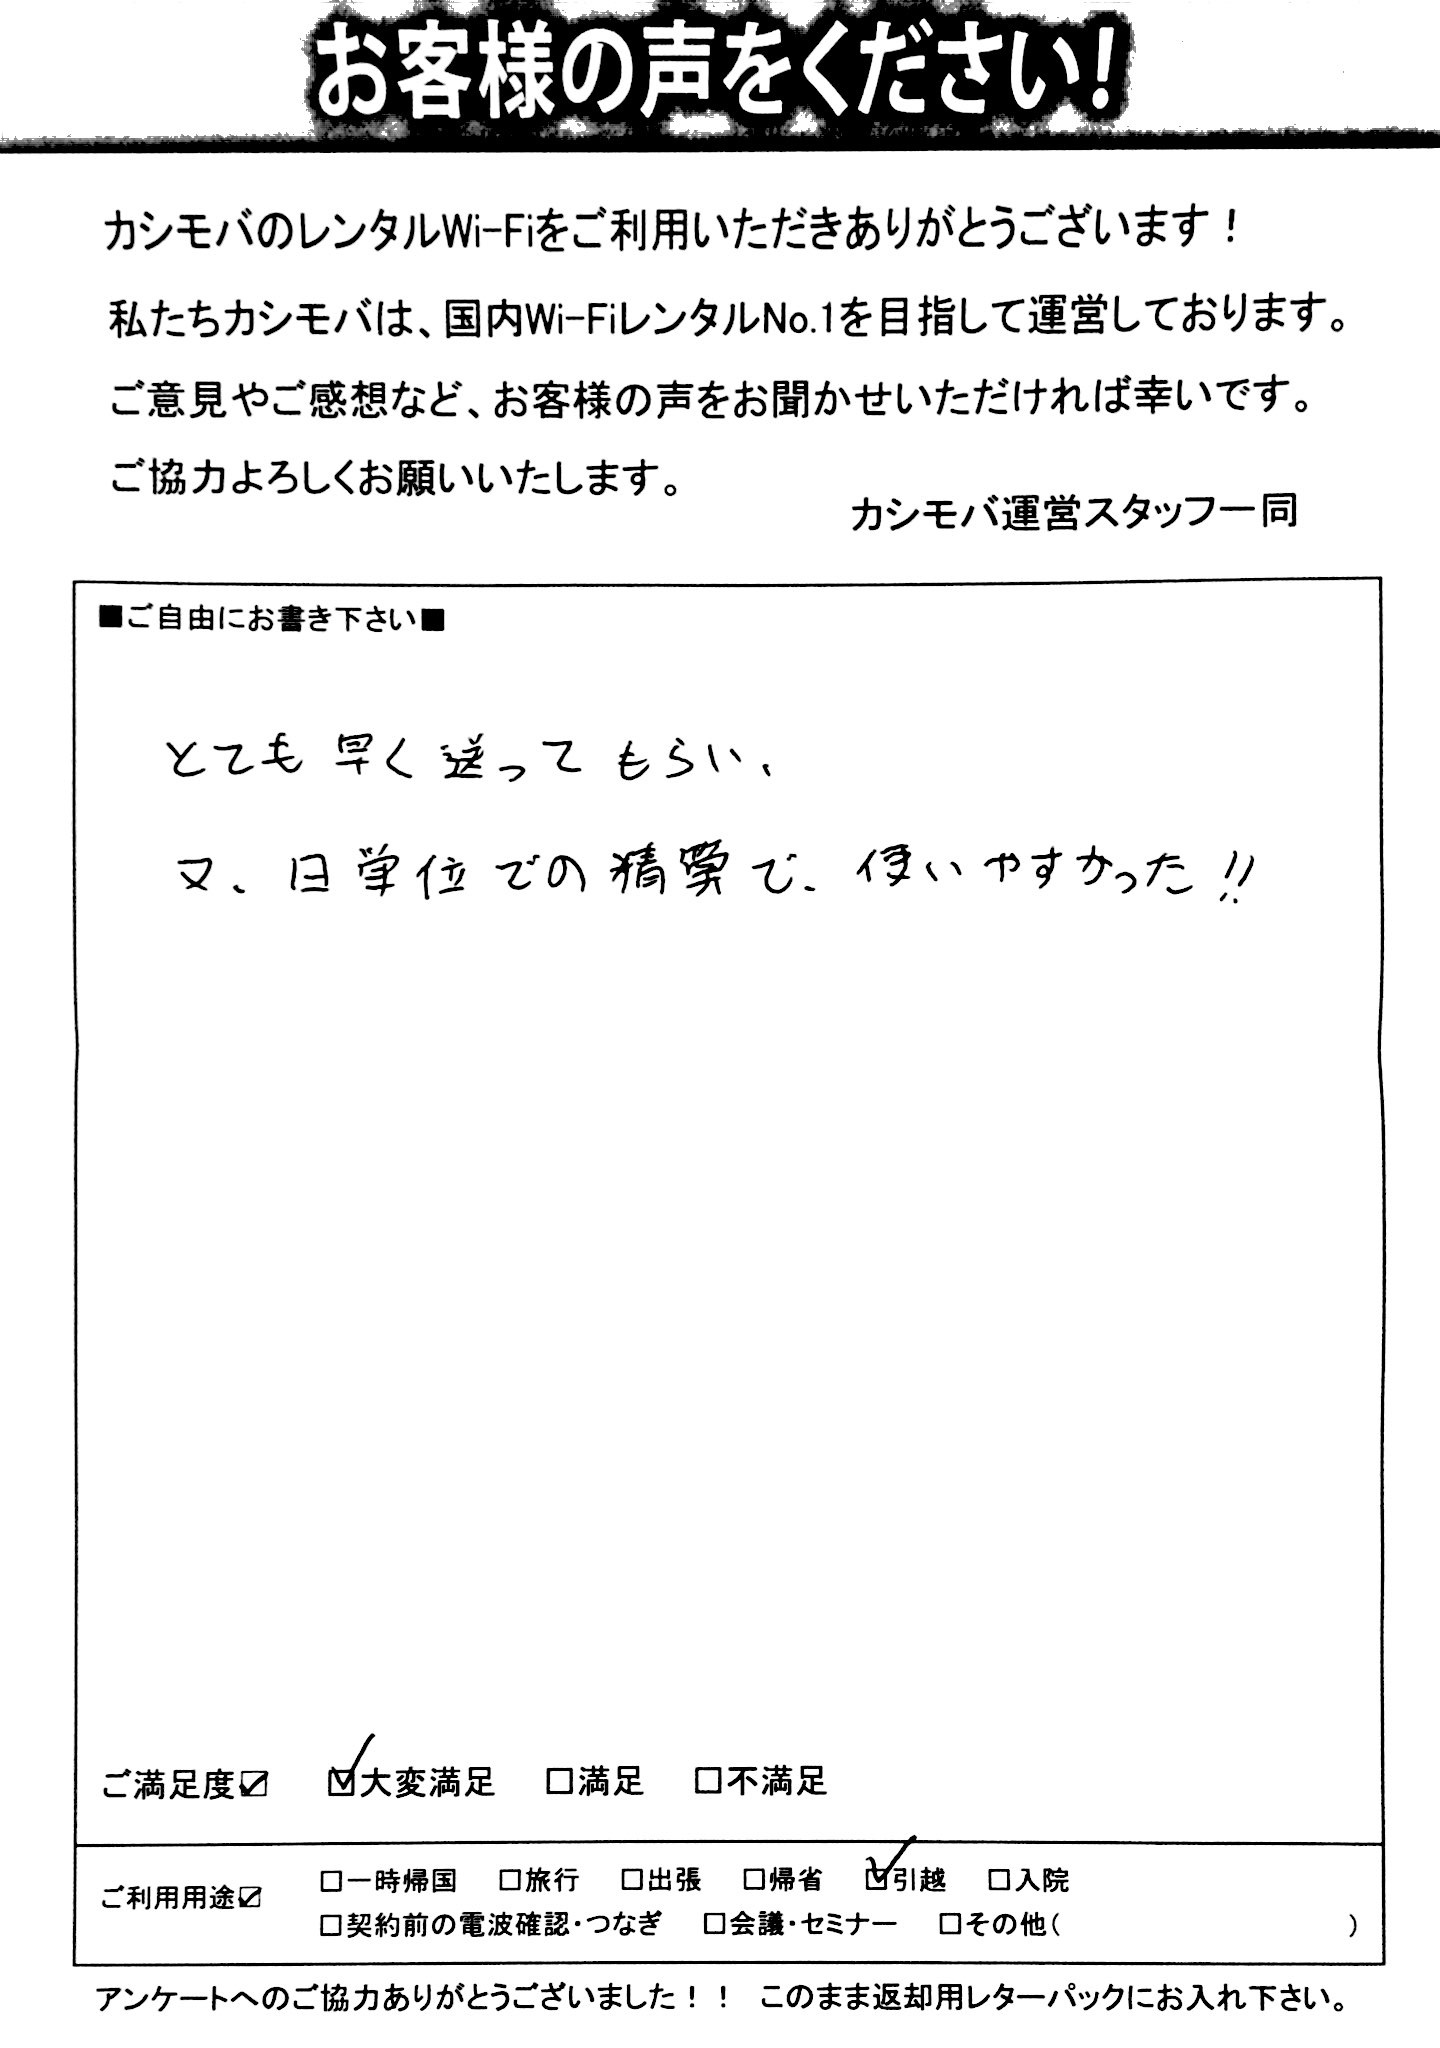 お客様の声をください!
カシモバのレンタルWi-Fiをご利用いただきありがとうございます！
私たちカシモバは、国内Wi-FiレンタルNo.1を目指して運営しております。
ご意見やご感想など、お客様の声をお聞かせいただければ幸いです。
ご協力よろしくお願いいたします。
カシモバ運営スタッフ一同
■ご自由にお書き下さい■
とても早く送ってもらい、
又、日単位での精算で、使いやすかった!!
ご満足度☑ ☑大変満足 □満足 □不満足
ご利用用途☑ □一時帰国 □旅行 □出張 □帰省 ☑引越 □入院
□契約前の電波確認・つなぎ □会議・セミナー □その他( )
アンケートへのご協力ありがとうございました！！ このまま返却用レターパックにお入れ下さい。